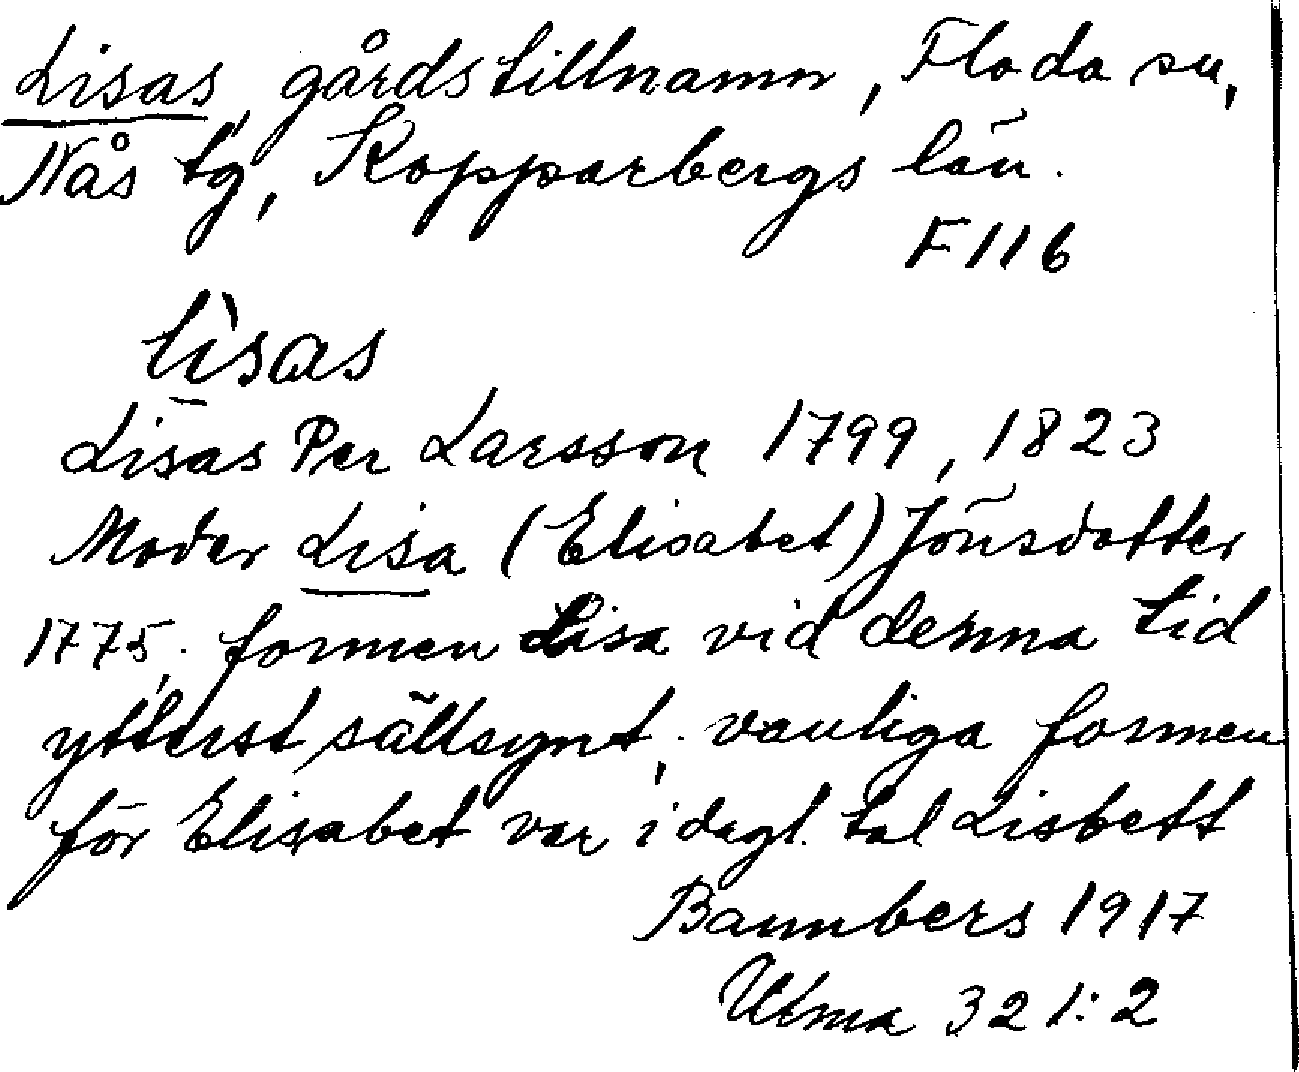 Lisas, gårdstillnamn, Floda sn,
Nås tg, Kopparbergs län.
F 116
lìsas
Lisas Per Larsson 1799, 1823
Moder Lisa (Elisabet) Jönsdotter
1775; formen Lisa vid denna tid
ytterst sällsynt; vanliga formen
för Elisabet var i dagl. tal Lisbett
1917
Utma 321:2